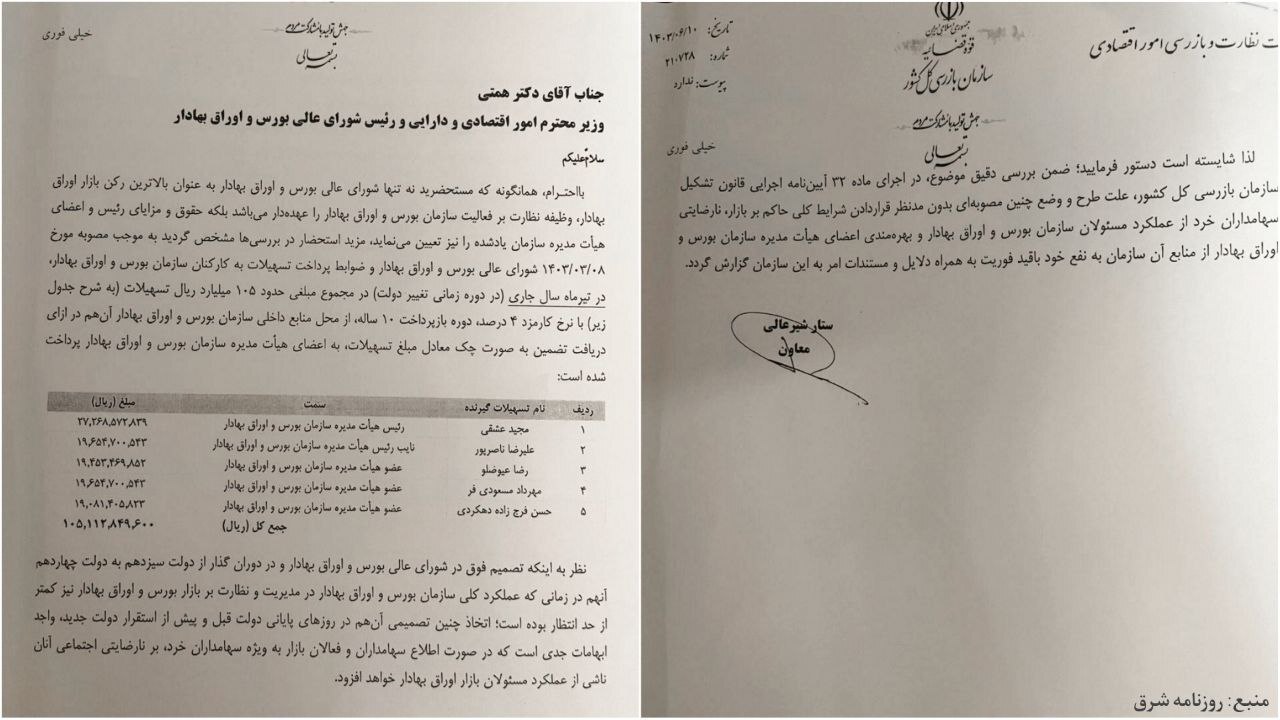 جهش تولید با مشارکت مردم
خیلی فوری
بسمه تعالی
جناب آقای دکتر همتی
وزیر محترم امور اقتصادی و دارایی و رئیس شورای عالی بورس و اوراق بهادار
سلام علیکم
بااحترام، همانگونه که مستحضرید نه تنها شورای عالی بورس و اوراق بهادار به عنوان بالاترین رکن بازار اوراق
بهادار، وظیفه نظارت بر فعالیت سازمان بورس و اوراق بهادار را عهده‌دار می‌باشد بلکه حقوق و مزایای رئیس و اعضای
هیأت مدیره سازمان یادشده را نیز تعیین می‌نماید، مزید استحضار در بررسی‌ها مشخص گردید به موجب مصوبه مورخ
۱۴۰۳/۰۳/۰۸ شورای عالی بورس و اوراق بهادار و ضوابط پرداخت تسهیلات به کارکنان سازمان بورس و اوراق بهادار،
در تیرماه سال جاری (در دوره زمانی تغییر دولت) در مجموع مبلغی حدود ۱۰۵ میلیارد ریال تسهیلات (به شرح جدول
زیر) با نرخ کارمزد ۴ درصد، دوره بازپرداخت ۱۰ ساله، از محل منابع داخلی سازمان بورس و اوراق بهادار آن‌هم در ازای
دریافت تضمین به صورت چک معادل مبلغ تسهیلات، به اعضای هیأت مدیره سازمان بورس و اوراق بهادار پرداخت
شده است:
ردیف نام تسهیلات گیرنده سمت مبلغ (ریال)
۱ مجید عشقی رئیس هیأت مدیره سازمان بورس و اوراق بهادار ۲۷,۲۶۸,۵۷۲,۸۳۹
۲ علیرضا ناصرپور نایب رئیس هیأت مدیره سازمان بورس و اوراق بهادار ۱۹,۶۵۴,۷۰۰,۵۴۳
۳ رضا عیوضلو عضو هیأت مدیره سازمان بورس و اوراق بهادار ۱۹,۴۵۳,۴۶۹,۸۵۲
۴ مهرداد مسعودی فر عضو هیأت مدیره سازمان بورس و اوراق بهادار ۱۹,۶۵۴,۷۰۰,۵۴۳
۵ حسن فرج زاده دهکردی عضو هیأت مدیره سازمان بورس و اوراق بهادار ۱۹,۰۸۱,۴۰۵,۸۲۳
جمع کل (ریال) ۱۰۵,۱۱۲,۸۴۹,۶۰۰
نظر به اینکه تصمیم فوق در شورای عالی بورس و اوراق بهادار و در دوران گذار از دولت سیزدهم به دولت چهاردهم
آنهم در زمانی که عملکرد کلی سازمان بورس و اوراق بهادار در مدیریت و نظارت بر بازار بورس و اوراق بهادار نیز کمتر
از حد انتظار بوده است؛ اتخاذ چنین تصمیمی آن‌هم در روزهای پایانی دولت قبل و پیش از استقرار دولت جدید، واجد
ابهامات جدی است که در صورت اطلاع سهامداران و فعالان بازار به ویژه سهامداران خرد، بر نارضایتی اجتماعی آنان
ناشی از عملکرد مسئولان بازار اوراق بهادار خواهد افزود.
جمهوری اسلامی ایران
قوه قضائیه
سازمان بازرسی کل کشور
ت نظارت و بازرسی امور اقتصادی
تاریخ: ۱۴۰۳/۰۶/۱۰
شماره: ۲۱۰۷۲۸
پیوست: ندارد
جهش تولید با مشارکت مردم
خیلی فوری
بسمه تعالی
لذا شایسته است دستور فرمایید؛ ضمن بررسی دقیق موضوع، در اجرای ماده ۳۲ آیین‌نامه اجرایی قانون تشکیل
سازمان بازرسی کل کشور، علت طرح و وضع چنین مصوبه‌ای بدون مدنظر قراردادن شرایط کلی حاکم بر بازار، نارضایتی
سهامداران خرد از عملکرد مسئولان سازمان بورس و اوراق بهادار و بهره‌مندی اعضای هیأت مدیره سازمان بورس و
اوراق بهادار از منابع آن سازمان به نفع خود باقید فوریت به همراه دلایل و مستندات امر به این سازمان گزارش گردد.
ستار شیرعالی
معاون
منبع: روزنامه شرق